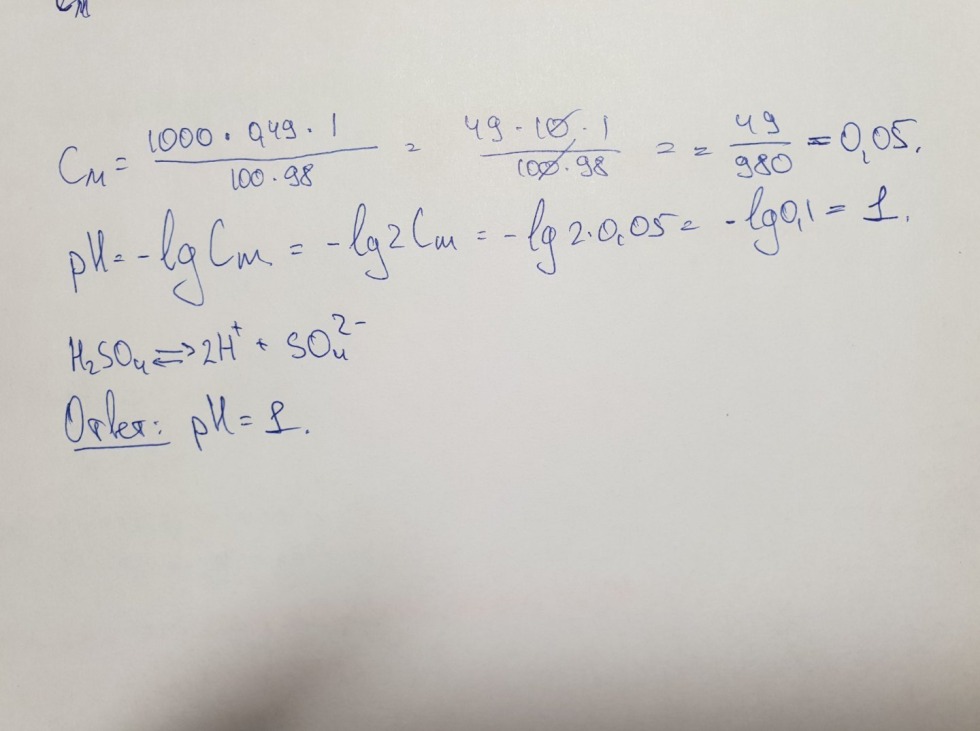 См
Cм = 1000 · 0,49 · 1 / 100 · 98 = 49 · 10 · 1 / 100 · 98 = = 49 / 980 = 0,05.
pH = -lg Cм = -lg 2 Cм = -lg 2·0,05 = -lg 0,1 = 1.
H₂SO₄ ⇌ 2H⁺ + SO₄²⁻
Ответ: pH = 1.